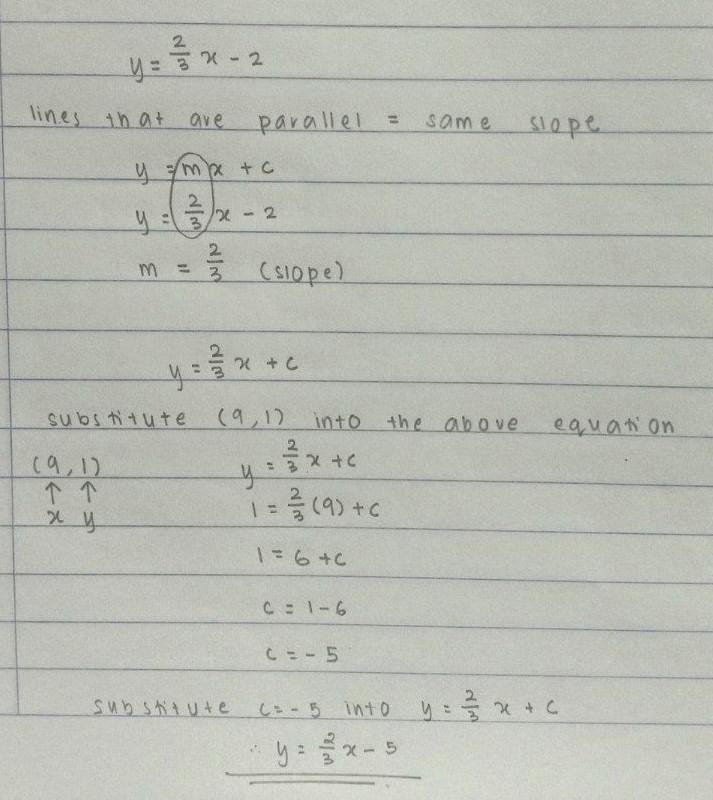 y = 2/3 x - 2
lines that are parallel = same slope
y = mx + c
y = 2/3 x - 2
m = 2/3 (slope)
y = 2/3 x + c
substitute (9,1) into the above equation
(9,1) y = 2/3 x + c
↑ ↑ 1 = 2/3 (9) + c
x y
1 = 6 + c
c = 1 - 6
c = - 5
substitute c = - 5 into y = 2/3 x + c
∴ y = 2/3 x - 5